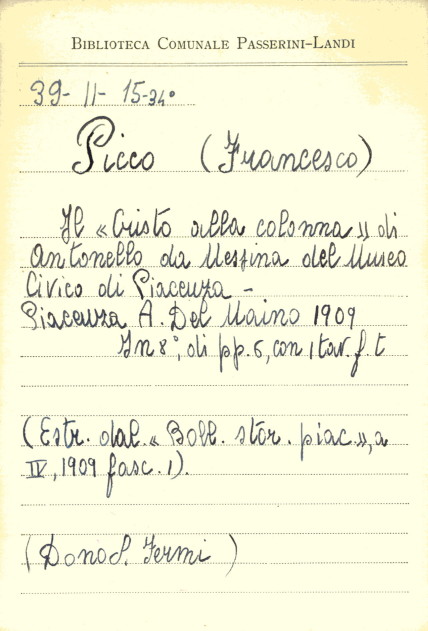 BIBLIOTECA COMUNALE PASSERINI-LANDI
39- II- 15-34°
Picco (Francesco)
Il «Cristo alla colonna» di
Antonello da Messina del Museo
Civico di Piacenza -
Piacenza A. Del Maino 1909
In 8°, di pp. 6, con 1 tav. f. t
(Estr. dal «Boll. stor. piac.», a
IV, 1909 fasc. 1).
(Dono S. Fermi)